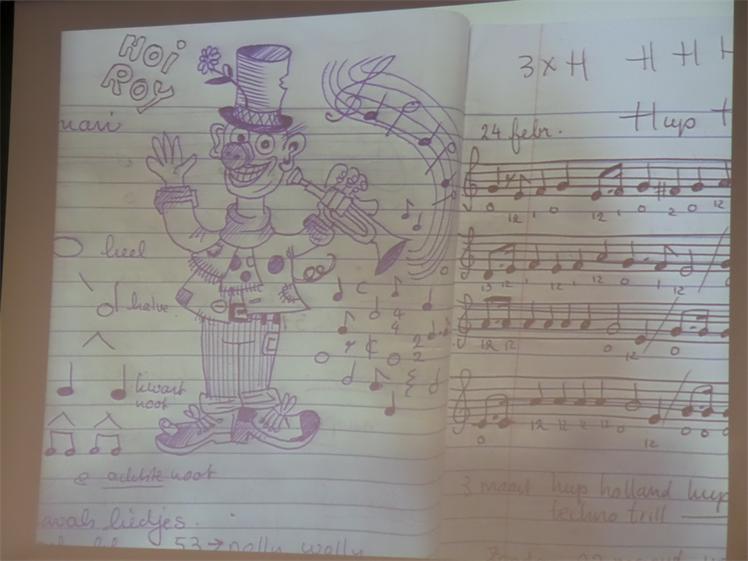 HOI
ROY
nuari
heel
halve
kwart
noot
e achtste noot
avals liedjes.
53 →
3 x H H H
Hup
24 febr.
0 12 1 0 12 1 0 2 0 12
13 12 1 12 1 12 0 1 12
12 12 0 12 0
0 12 12 12 12 0 12 0 0 0
3 maart hup holland hup
techno trill